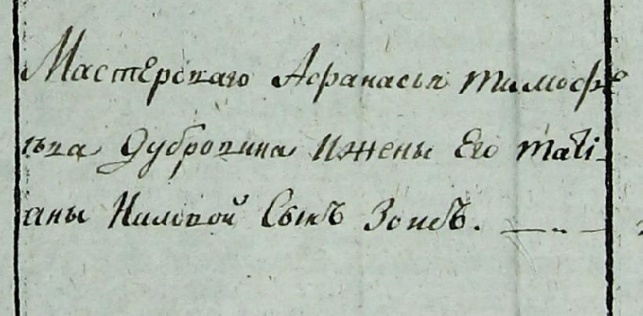 Мастерскаго Афанасья тимофѣ
ева Дубровина Ижены Его татi-
аны Ниловой Сынъ Зотъ.